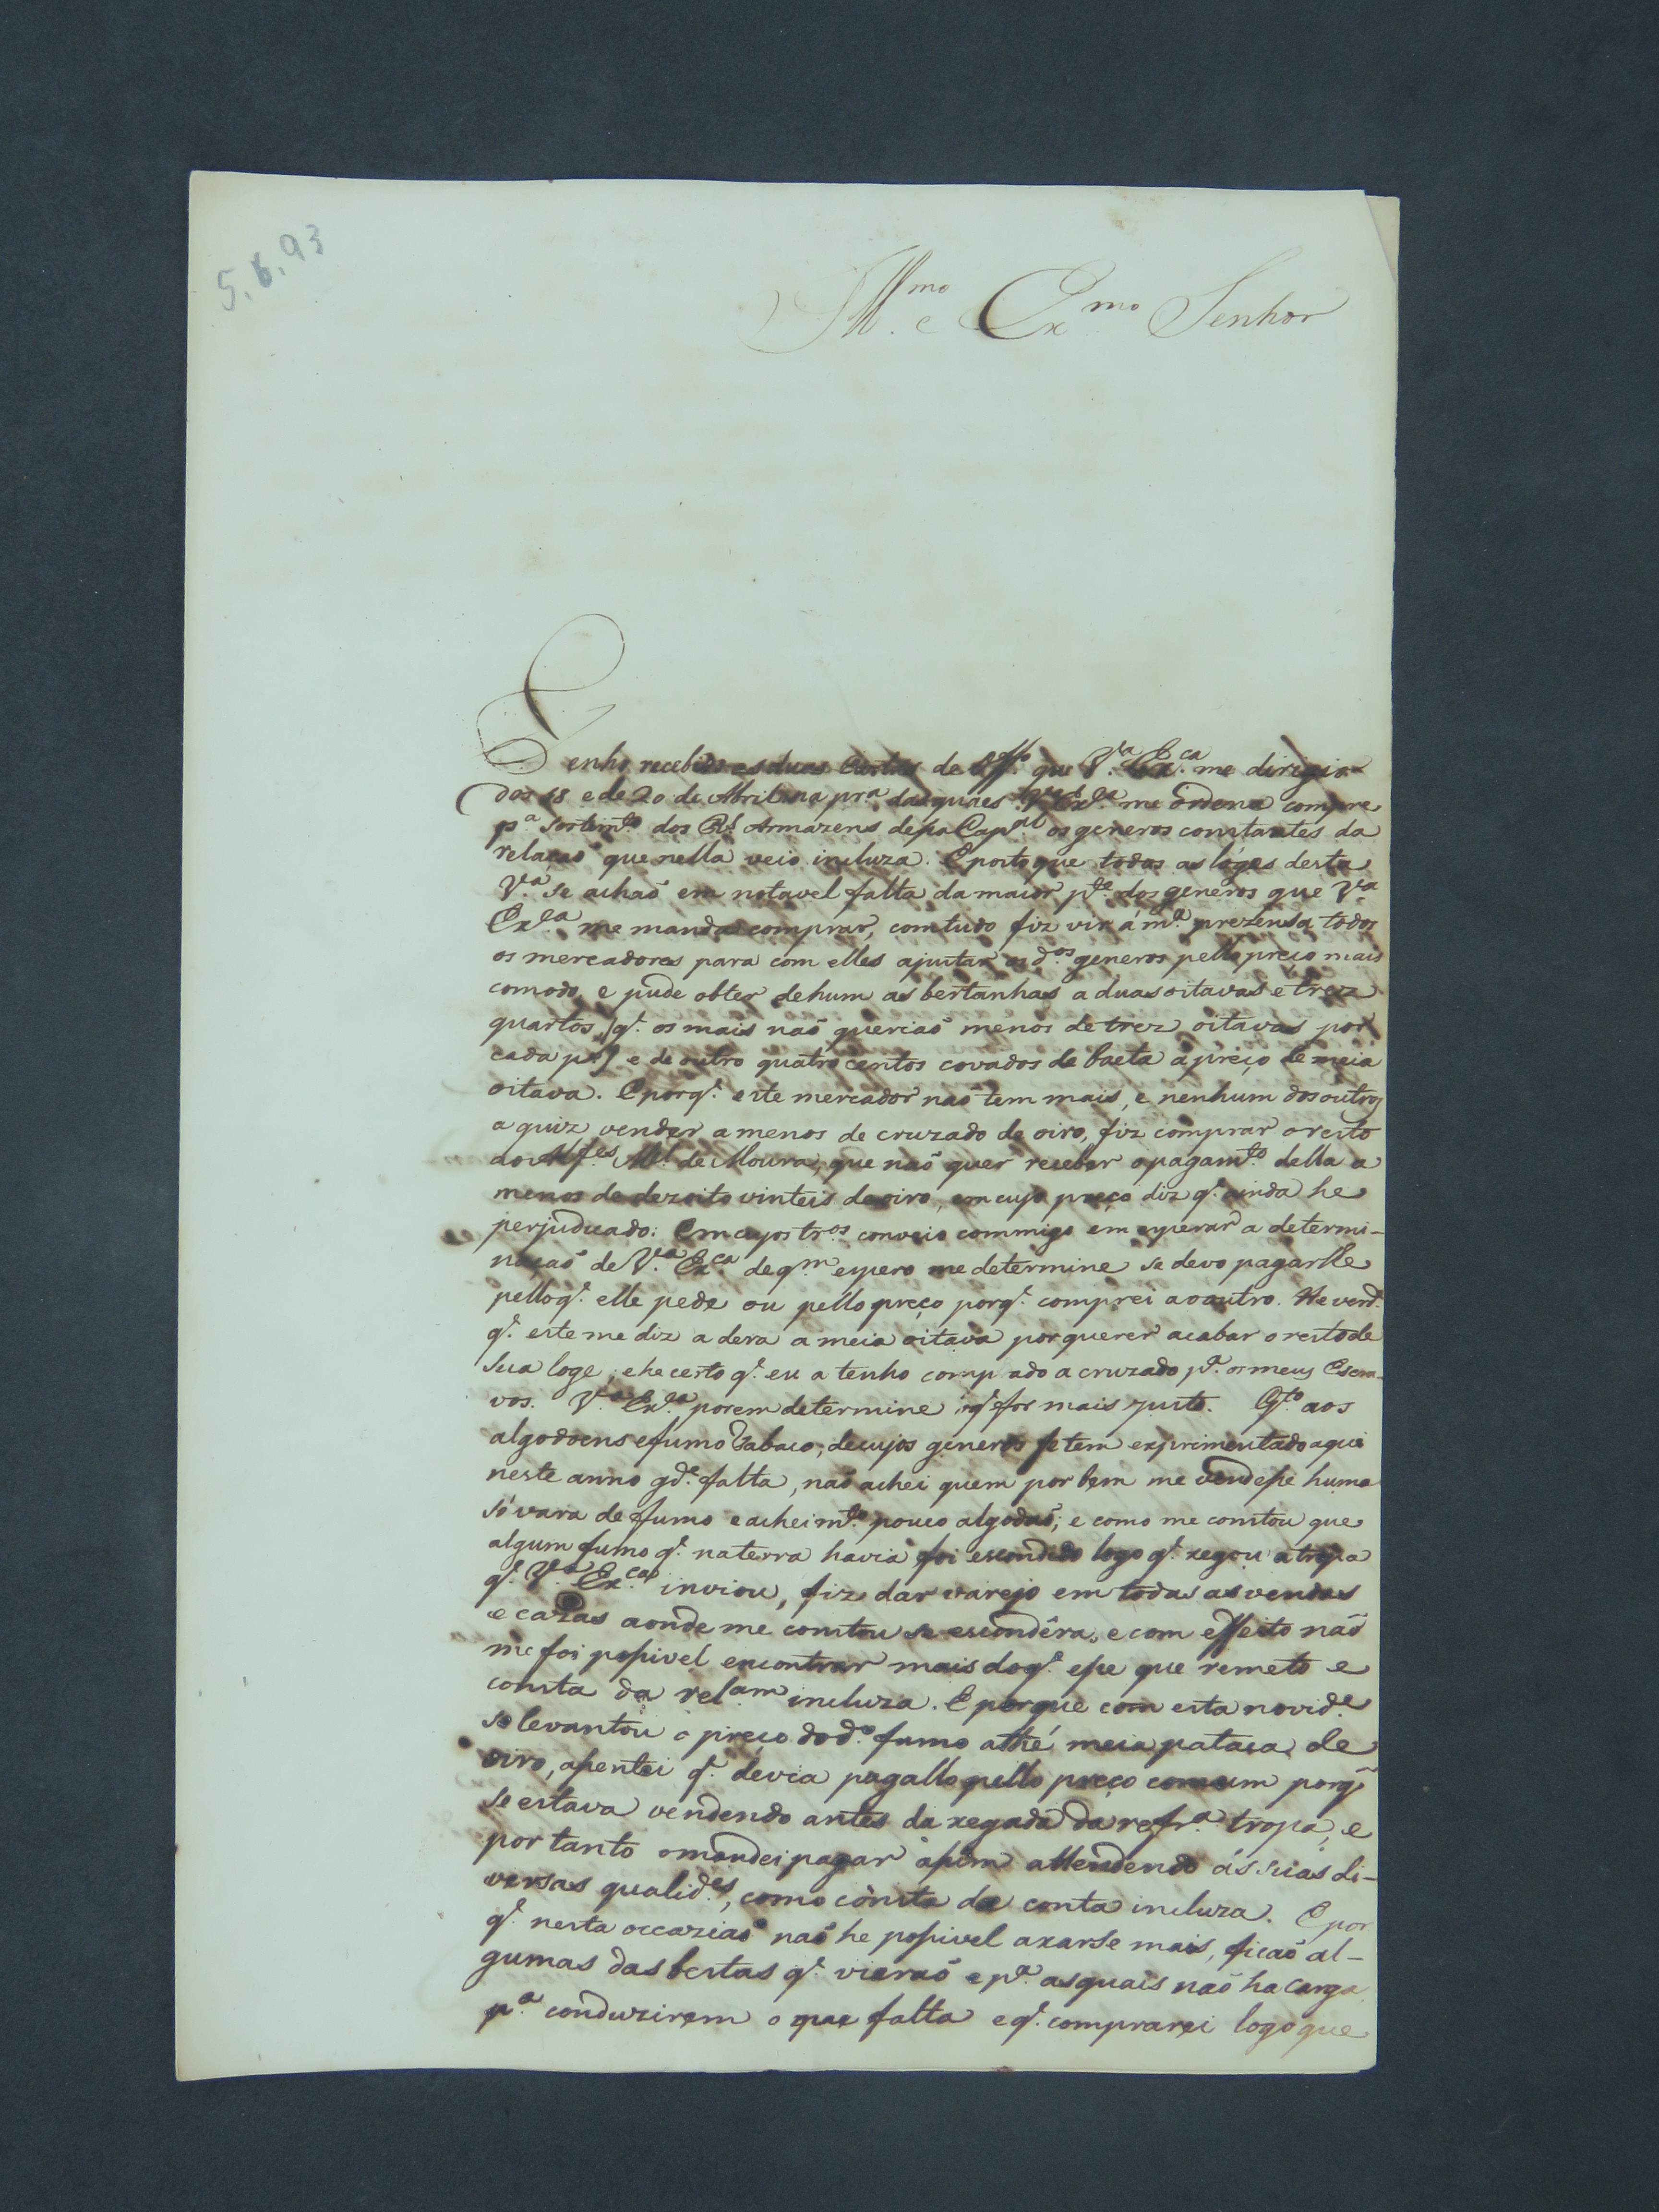 5.6.93
Ill.mo e Ex.mo Senhor
Tenho recebido as duas Cartas de Off.o que V.a Ex.ca me dirigio
dos 18 e de 20 de Abril: na pr.a das quaes V.a Ex.ca me ordena compre
p.a sortim.to dos R.s Armazens dessa Cap.al os generos constantes da
relaçaõ que nella veio incluza. E posto que todas as lóges desta
V.a se achaõ em notavel falta da maior p.te dos generos que V.a
Ex.ca me manda comprar, comtudo fiz vir á m.a prezensa todos
os mercadores para com elles ajustar os d.os generos pello preço mais
comodo, e pude obter de hum as bertanhas a duas oitavas e trez
quartos, (q.' os mais naõ queriaõ menos de trez oitavas por
cada p.ça) e de outro quatro centos covados de baeta a preço de meia
oitava. E porq.' este mercador naõ tem mais, e nenhum dos outros
a quiz vender a menos de cruzado de oiro, fiz comprar o resto
ao Alf.es M.el de Moura, que naõ quer receber o pagam.to della a
menos de dezoito vinteis de oiro, em cujo preço diz q.' ainda he
perjudicado: Em cujos tr.os conveio commigo em esperar a determi-
naçaõ de V.a Ex.ca de q.m espero me determine se devo pagarlhe
pello q.' elle pede ou pello preço porq.' comprei ao outro. He verd.e
q.' este me diz a dera a meia oitava por querer acabar o resto de
sua loge; e he certo q.' eu a tenho comprado a cruzado p.a os meus Escra-
vos. V.a Ex.ca porem determine oq.' for mais justo. Q.to aos
algodoens e fumo Tabaco; de cujos generos se tem exprimentado aqui
neste anno gd.e falta, naõ achei quem por bem me vendesse huma
só vara de fumo e achei m.to pouco algodaõ; e como me constou que
algum fumo q.' na terra havia foi escondido logo q.' xegou a tropa
q.' V.a Ex.ca inviou, fiz dar varejo em todas as vendas
e cazas aonde me constou se escondêra, e com effeito naõ
me foi possivel encontrar mais doq.' esse que remeto e
consta da rel.am incluza. E porque com esta novid.e
se levantou o preço do d.o fumo athé meia pataca de
oiro, assentei q.' devia pagallo pello preço comum porq.'
se estava vendendo antes da xegada da refr.a tropa, e
por tanto o mandei pagar assim attendendo ás suas di-
versas qualid.es, como consta da conta incluza. E por
q.' nesta occaziaõ naõ he possivel axarse mais, ficaõ al-
gumas das bestas q.' vieraõ e p.a as quais naõ ha carga
p.a conduzirem o que falta e q.' comprarei logo que